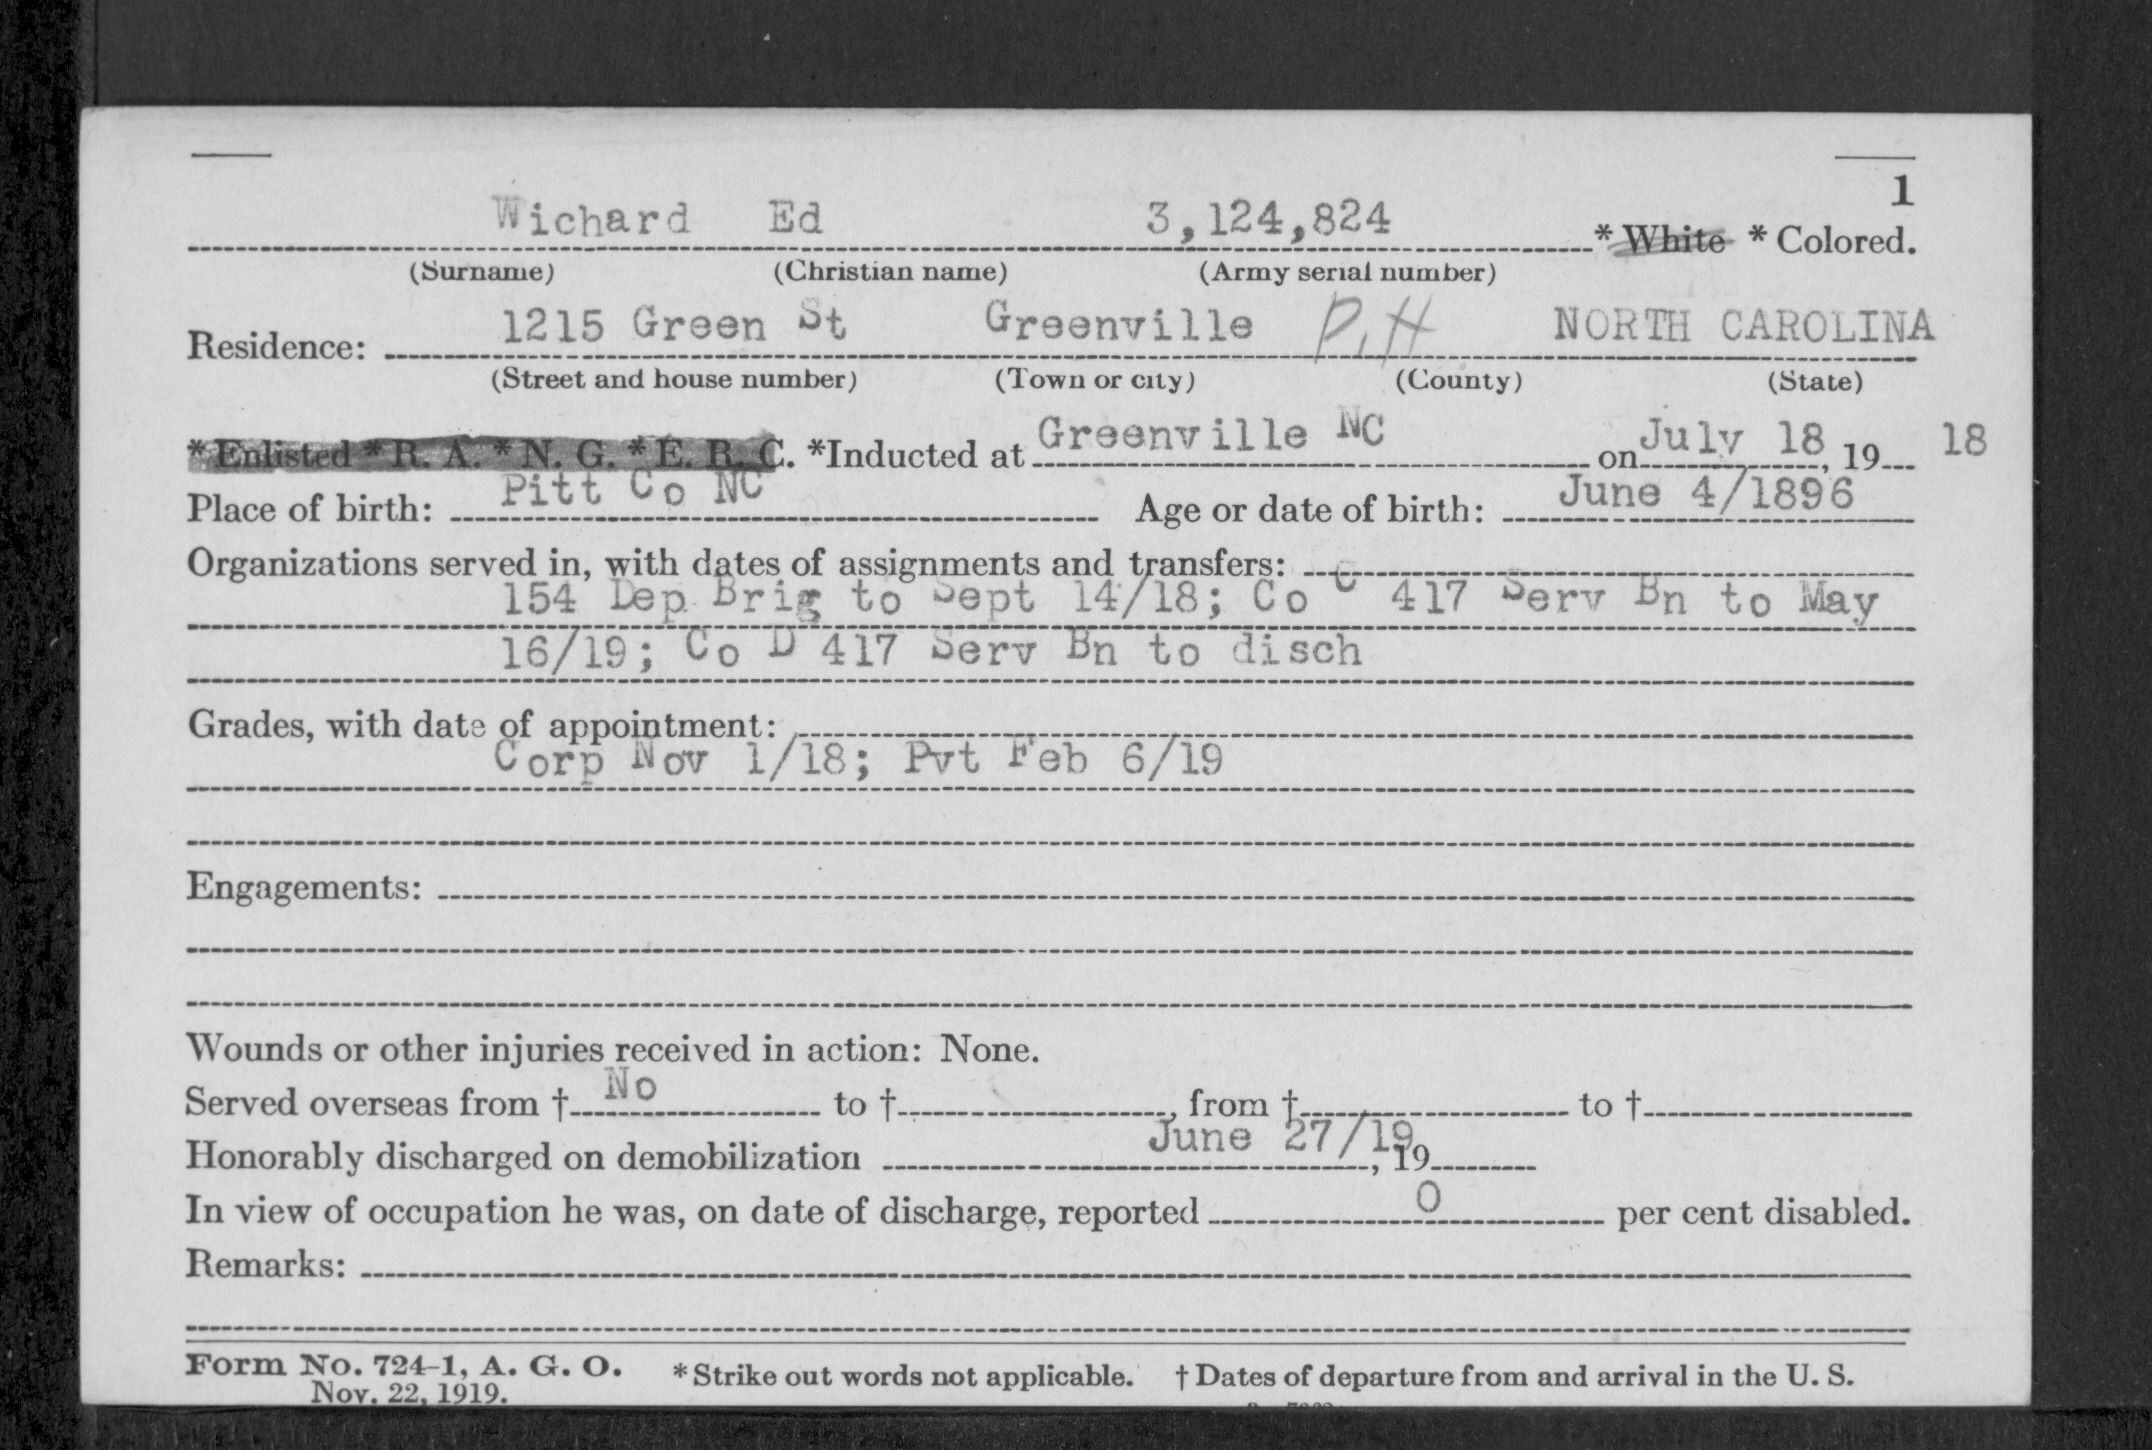 1
Wichard Ed 3,124,824 * White * Colored.
(Surname) (Christian name) (Army serial number)
Residence: 1215 Green St Greenville Pitt NORTH CAROLINA
(Street and house number) (Town or city) (County) (State)
* Enlisted * R. A. * N. G. * E. R. C. *Inducted at Greenville NC on July 18, 19 18
Place of birth: Pitt Co NC Age or date of birth: June 4/1896
Organizations served in, with dates of assignments and transfers:
154 Dep Brig to Sept 14/18; Co C 417 Serv Bn to May
16/19; Co D 417 Serv Bn to disch
Grades, with date of appointment:
Corp Nov 1/18; Pvt Feb 6/19
Engagements:
Wounds or other injuries received in action: None.
Served overseas from † No to †, from † to †
Honorably discharged on demobilization June 27/19, 19
In view of occupation he was, on date of discharge, reported 0 per cent disabled.
Remarks:
Form No. 724-1, A. G. O. * Strike out words not applicable. † Dates of departure from and arrival in the U. S.
Nov. 22, 1919.